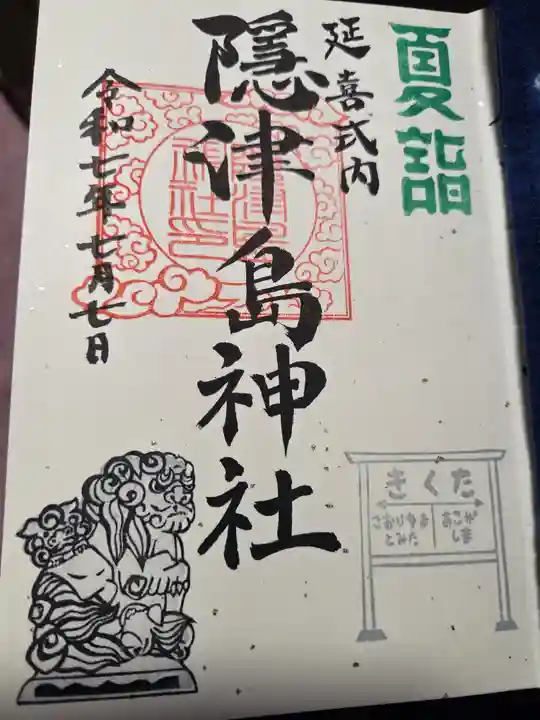 夏詣
延喜式内
隠津島神社
令和七年七月七日
きくた
こおりやま
とみた
あこがしま